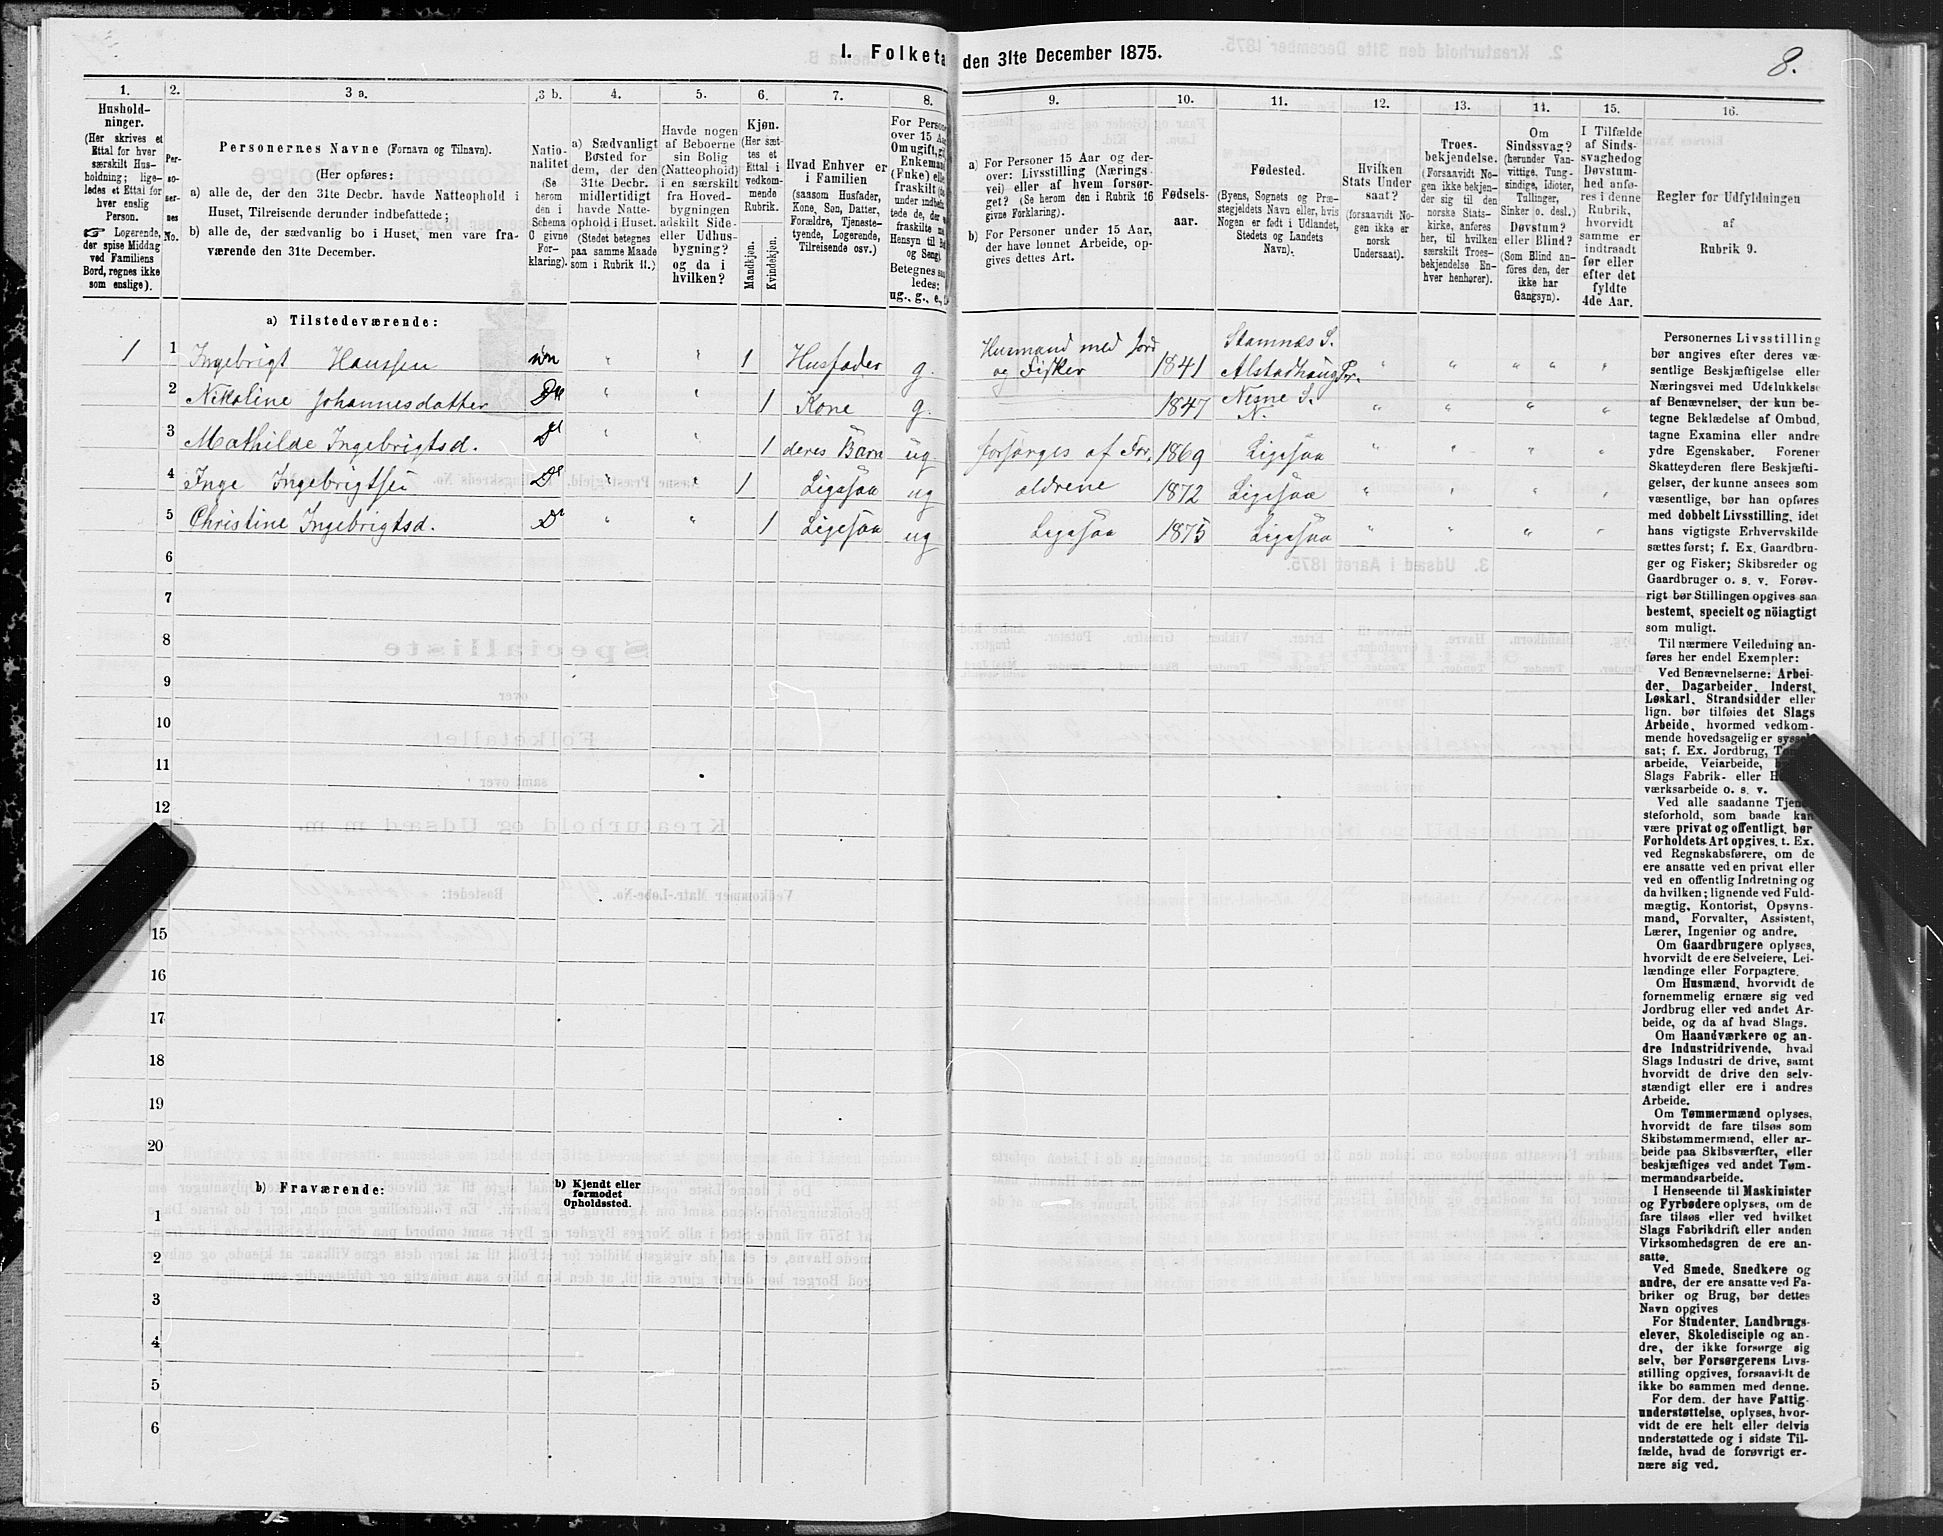 I. Folketa den 31te December 1875.
8.
1.
Hushold-
ninger.
(Her skrives et
Ettal for hver
særskilt Hus-
holdning; lige-
ledes et Ettal for
hver enslig
Person.
Logerende,
der spise Middag
ved Familiens
Bord, regnes ikke
som enslige).
2.
Per-
so-
ner-
nes
No.
3 a.
Personernes Navne (Fornavn og Tilnavn).
(Her opføres:
a) alle de, der den 31te Decbr. havde Natteophold i
Huset, Tilreisende derunder indbefattede;
b) alle de, der sædvanlig bo i Huset, men vare fra-
værende den 31te December.
3 b.
Natio-
nalitet
(Se
herom
den i
Schema
O givne
For-
klaring).
4.
a) Sædvanligt
Bosted for
dem, der den
31te Decbr.
midlertidigt
havde Natte-
ophold i Huset.
(Stedet betegnes
paa samme Maade
som i Rubrik 11.)
5.
Havde nogen
af Beboerne
sin Bolig
(Natteophold)
i en særskilt
fra Hoved-
bygningen
adskilt Side-
eller Udhus-
bygning?
og da i
hvilken?
6.
Kjøn.
(Her sæt-
tes et
Ettal i
vedkom-
mende
Rubrik.
Mandkjøn.
Kvindekjøn.
7.
Hvad Enhver er
i Familien
(saasom Husfader,
Kone, Søn, Datter,
Forældre, Tjeneste-
tyende, Logerende,
Tilreisende osv.)
8.
For Persone
over 15 Aa
Om ugift, g
Enkemand
(Enke) elle
fraskilt
under indbefat-
tede de, der
fraskilte
Hensyn til B
og Seng).
Betegnes saa
ledes:
ug., g., e.,
9.
a) For Personer 15 Aar og der-
over: Livsstilling (Nærings-
vei) eller af hvem forsør-
get? (Se herom den i Rubrik 16
givne Forklaring).
b) For Personer under 15 Aar,
der have lønnet Arbeide, op-
gives dettes Art.
10.
Fødsels-
aar.
11.
Fødested.
(Byens, Sognets og Præ-
stegjeldets Navn eller, hvis
Nogen er født i Udlandet,
Stedets og Landets
Navn).
12.
Hvilken
Stats Under
saat?
(forsaavidt No-
gen ikke er
norsk
Undersaat).
13.
Troes-
bekjendelse.
(Forsaavidt No-
gen ikke bekjen-
der sig til den
norske Stats-
kirke, anføres
her, til hvilken
særskilt Troes-
bekjendelse En-
hver henhører).
14.
Om
Sindssvag?
(herunder Van-
vittige, Tung-
sindige, Idioter,
Tullinger,
Sinker o. desl.)
Døvstum?
eller Blind?
(Som Blind an-
føres den, der
ikke har
Gangsyn).
15.
I Tilfælde
af Sinds-
svaghed og
Døvstum-
hed anfø-
res i denne
Rubrik,
hvorvidt
samme er
indtraadt
før eller
efter det
fyldte
4de Aar.
16.
Regler for Udfyldningen
af
Rubrik 9.
a) Tilstedeværende:
1 1 Ingebrigt Hanssen " " 1 Husfader g. Husmand med Jord og Fisker 1841 Stamnæs S. Alstadhaug Pr. " " " " "
2 Nikoline Johannesdatter " " 1 Kone g. 1847 Nesne S. N. " " " "
3 Mathilde Ingebrigtsd. " " 1 deres Barn ug. forsørges af For- 1869 Ligesaa
4 Inge Ingebrigtsen " " 1 Ligesaa ug ældrene 1872 Ligesaa
5 Christine Ingebrigtsd. " " 1 Ligesaa ug Ligesaa 1875 Ligesaa
6
7
8
9
10
11
12
15
16
17
18
19
20
b) Fraværende:
b) Kjendt eller
formodet
Opholdssted.
1
2
3
4
5
6
Personernes Livsstilling
bør angives efter deres væ-
sentlige Beskjæftigelse eller
Næringsvei med Udelukkelse
af Benævnelser, der kun be-
tegne Beklædelse af Ombud,
tagne Examina eller andre
ydre Egenskaber. Forener
Skatteyderen flere Beskjæfti-
gelser, der kunne ansees som
væsentlige, bør han opføres
med dobbelt Livsstilling, idet
hans vigtigste Erhvervskilde
sættes først; f. Ex. Gaardbru-
ger og Fisker; Skibsreder og
Gaardbruger o. s. v. Forøv-
rigt bør Stillingen opgives saa
bestemt, specielt og nöiagtigt
som muligt.
Til nærmere Veiledning an-
føres her endel Exempler:
Ved Benævnelserne: Arbei-
der, Dagarbeider, Inderst,
Løskarl, Strandsidder eller
lign. bør tilføies det Slags
Arbeide, hvormed vedkom-
mende hovedsagelig er syssel-
sat; f. Ex. Jordbrug,
arbeide, Veiarbeide,
Slags Fabrik- eller
værksarbeide o. s. v.
Ved alle saadanne Tjene-
steforhold, som baade kan
være privat og offentligt, bør
Forholdets Art opgives, t. Ex.
ved Regnskabsførere, om de
ere ansatte ved en privat eller
ved en offentlig Indretning og
da hvilken; lignende ved Fuld-
mægtig, Kontorist, Opsyns-
mand, Forvalter, Assistent,
Lærer, Ingeniør og andre.
Om Gaardbrugere oplyses,
hvorvidt de ere Selveiere, Lei-
lændinge eller Forpagtere.
Om Husmænd, hvorvidt de
fornemmelig ernære sig ved
Jordbrug eller ved andet Ar-
beide, og da af hvad Slags.
Om Haandværkere og an-
dre Industridrivende, hvad
Slags Industri de drive, samt
hvorvidt de drive den selv-
stændigt eller ere i andres
Arbeide.
Om Tømmermænd oplyses,
hvorvidt de fare tilsøs som
Skibstømmermænd, eller ar-
beide paa Skibsværfter, eller
beskjæftiges ved andet Tøm-
mermandsarbeide.
I Henseende til Maskinister
og Fyrbødere oplyses, om de
fare tilsøs eller ved hvilket
Slags Fabrikdrift eller anden
Virksomhedsgren de ere an-
satte.
Ved Smede, Snedkere og
andre, der ere ansatte ved Fa-
briker og Brug, bør dettes
Navn opgives
For Studenter, Landbrugs-
elever, Skoledisciple og an-
dre, der ikke forsørge sig
selv, bør Forsørgerens Livs-
stilling opgives, forsaavidt de
ikke bo sammen med denne.
For dem, der have Fattig-
understøttelse, oplyses, hvor-
vidt de ere helt eller delvis
understøttede og i sidste Til-
fælde, hvad de forøvrigt er-
nære sig ved.